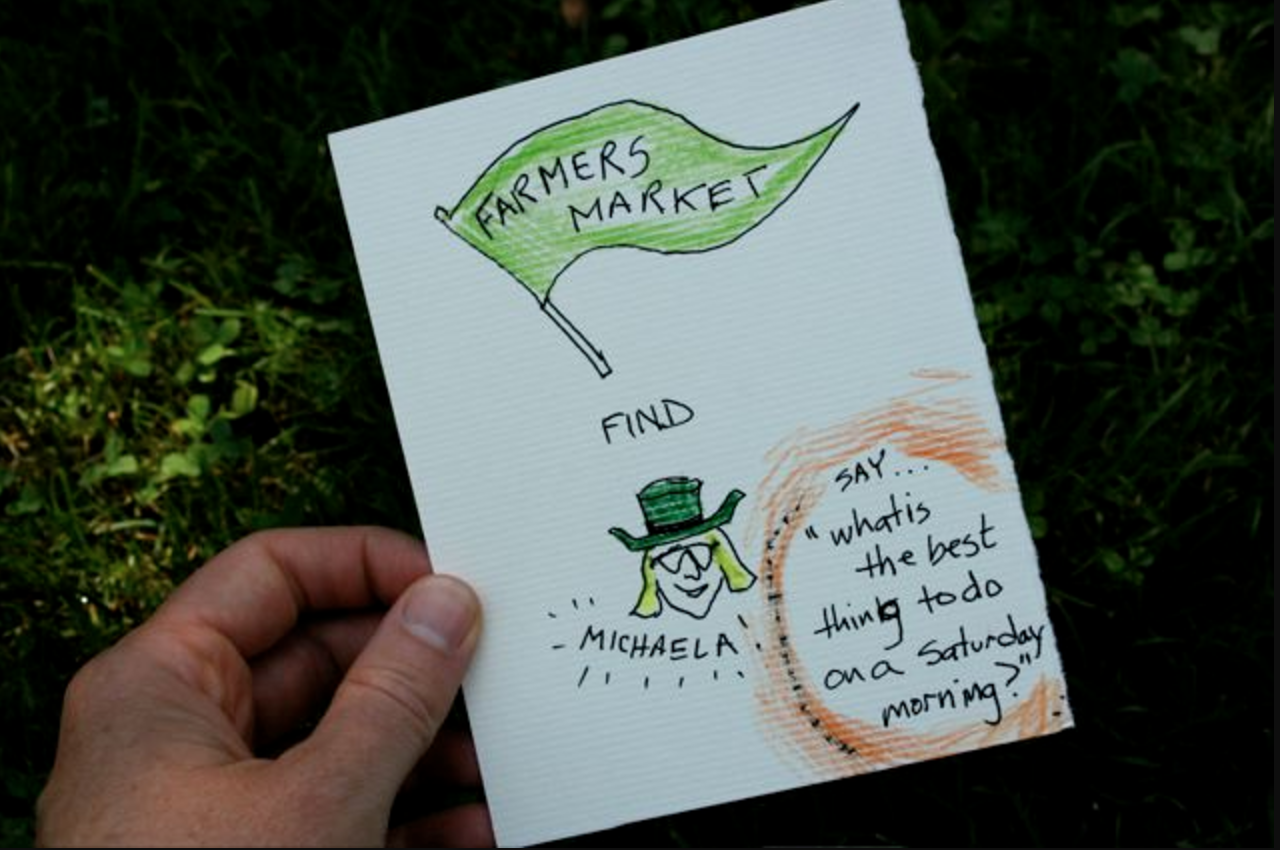 FARMERS
MARKET
FIND
MICHAELA
SAY...
"what is
the best
thing to do
on a Saturday
morning?"